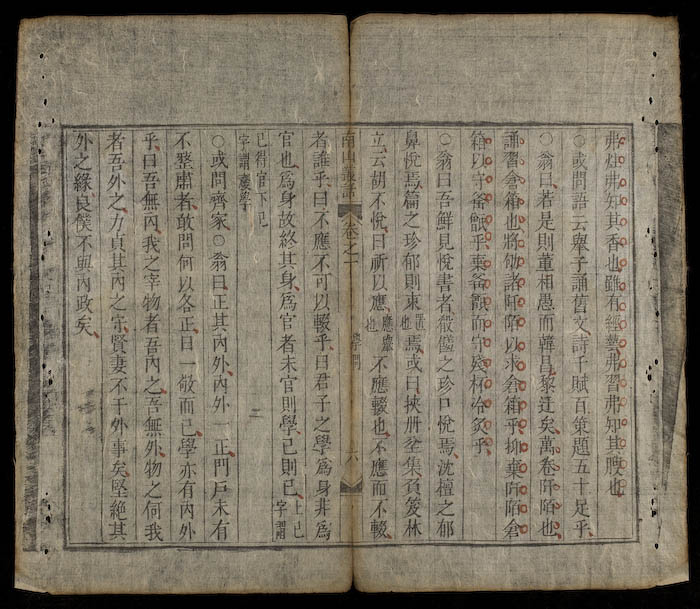 弗炷弗知其香也雖有經藝弗習弗知其腴也
○或問語云舉子誦舊文詩千賦百策題五十足乎
○翁曰若是則董相愚而韓昌黎迂矣萬卷阡陌也
誦習倉箱也將劬諸阡陌以求倉箱乎抑棄阡陌倉
箱以守乎棄而守殘杯冷炙乎
○翁曰吾鮮見悅書者殽饌之珍口悅焉沈檀之郁
鼻悅焉篇之珍郁則東置也焉或曰挾册坐集負笈林
立云胡不悅曰祈以應應舉也不應輟也不應而不輟
南山叢話 卷之一 學問 六
者誰乎曰不應不可以輟乎曰君子之學爲身非爲
官也爲身故終其身爲官者未官則學已則已上已字謂
已得官下已字謂廢學
○或問齊家○翁曰正其內外內外一正門戶未有
不整肅者敢問何以各正曰一敬而已學亦有內外
乎曰吾無內我之宰物者吾內之吾無外物之何我
者吾外之力貞其內之守賢妻不干外事矣堅絕其
外之緣良僕不與內政矣